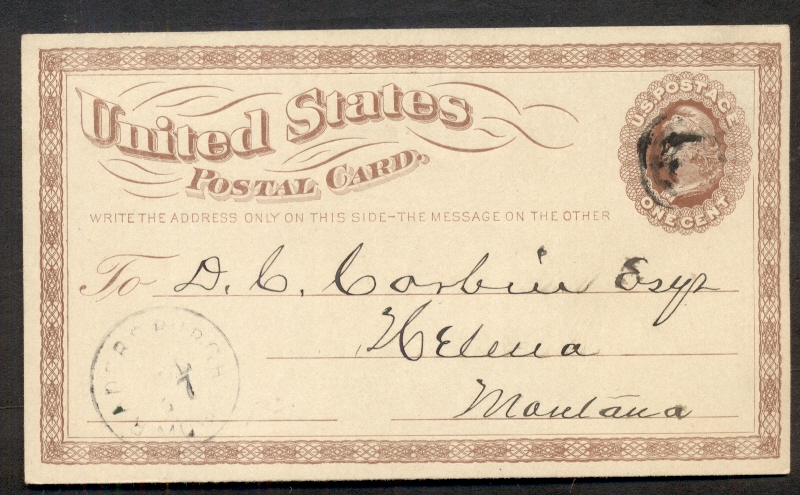 United States
POSTAL CARD.
U.S. POSTAGE
ONE CENT
WRITE THE ADDRESS ONLY ON THIS SIDE–THE MESSAGE ON THE OTHER
To D. C. Corbin Esqr
Helena
Montana